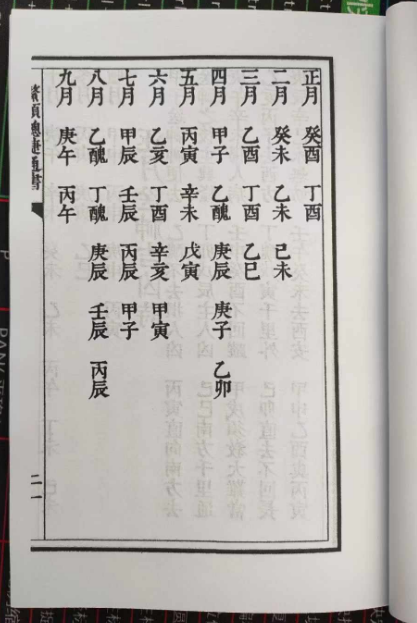 正月 癸酉 丁酉
二月 癸未 乙未 己未
三月 乙酉 丁酉 乙巳
四月 甲子 乙醜 庚辰 庚子 乙卯
五月 丙寅 辛未 戊寅
六月 乙亥 丁酉 辛亥 甲寅
七月 甲辰 壬辰 丙辰 甲子
八月 乙醜 丁醜 庚辰 壬辰 丙辰
九月 庚午 丙午
鰲頭總捷通書
二一